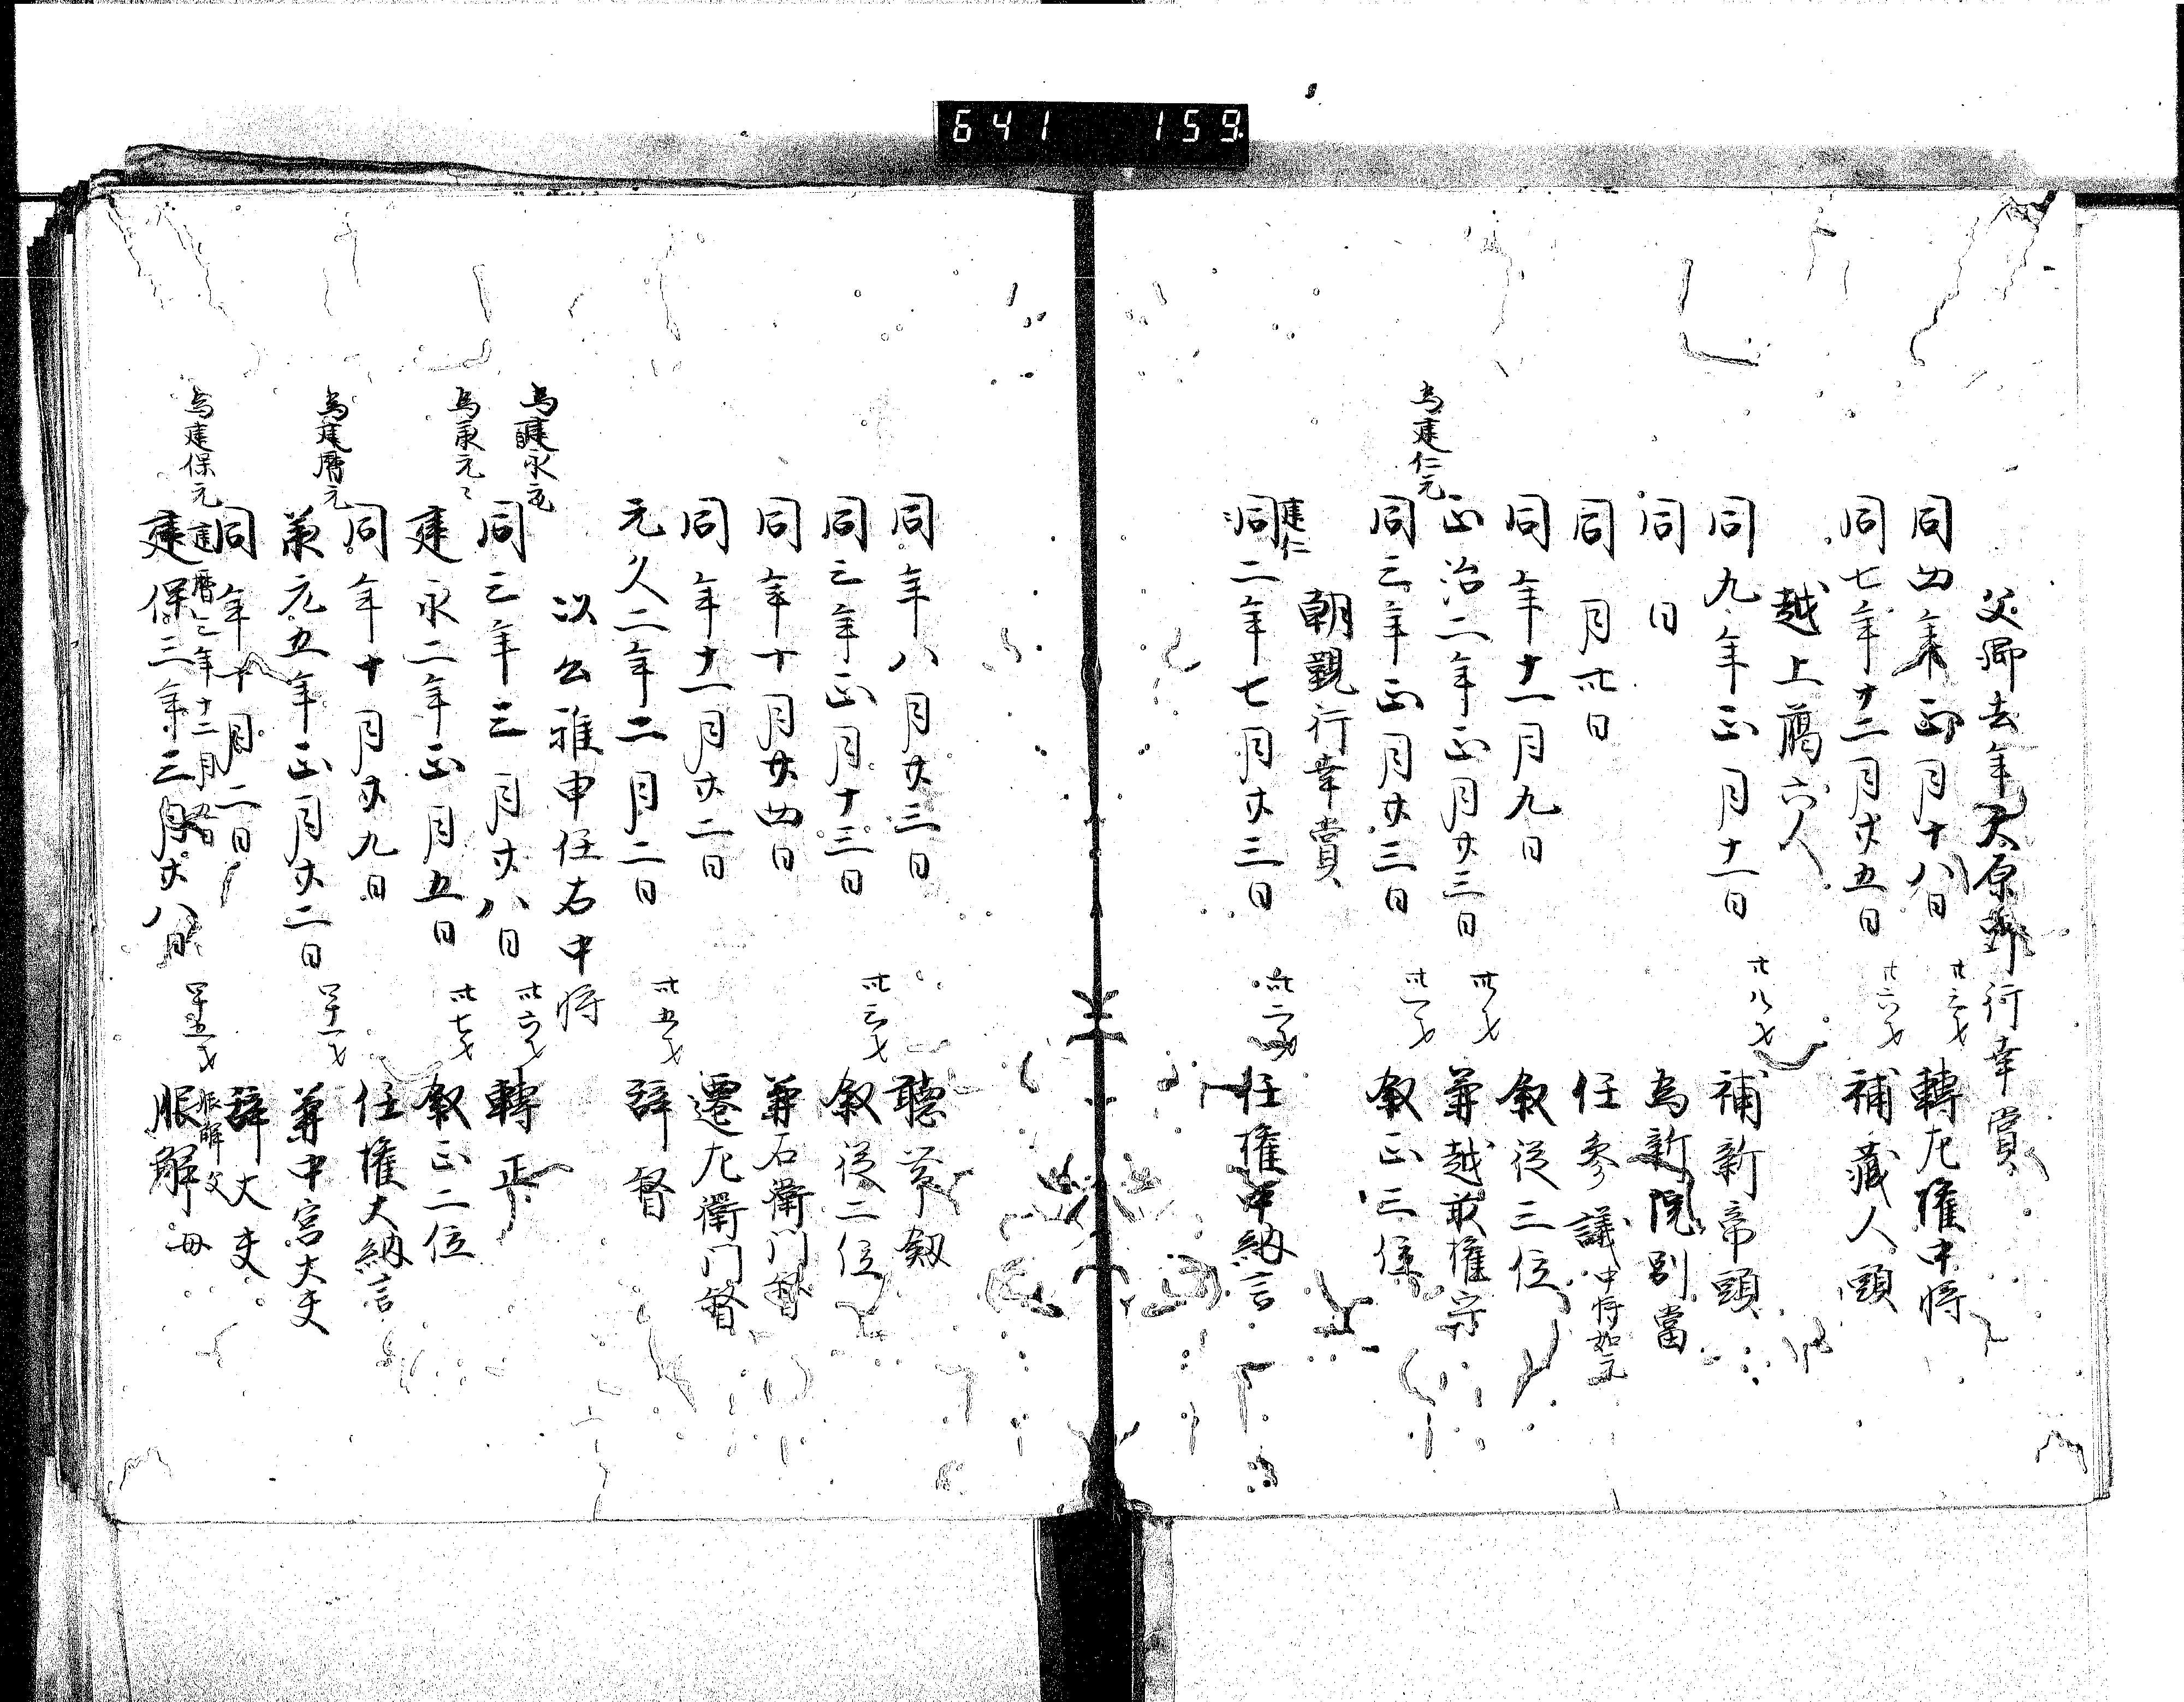 641 159
父卿去年大原野行幸賞
同四年正月十八日 廿三才 轉左權中將
同七年十二月廿五日 廿六才 補藏人頭
越上﨟六人
同九年正月十一日 廿八才 補新帝頭
同日 為新院別當
同月卅日 任參議 中將如元
同年十一月九日 敘從三位
為建仁元
正治二年正月廿三日 卅才 兼越前權守
同三年正月廿三日 卅一才 敘正三位
朝覲行幸賞
建仁
同二年七月廿三日 卅二才 任權中納言
同年八月廿三日 聽帶劔
同三年正月十三日 卅三才 敘從二位
同年十月廿四日 兼右衛門督
同年十一月廿二日 遷左衛門督
元久二年二月二日 卅五才 辞督
以公雅申任右中將
為建永元
同三年三月廿八日 卅六才 轉正
為承元々
建永二年正月五日 卅七才 敘正二位
同年十月廿九日 任權大納言
為建曆元
承元五年正月廿二日 四十一才 兼中宮大夫
同年十月二日 辞大夫
建曆三年十二月五日 服解父
為建保元
建保三年三月廿八日 四十五才 服解母